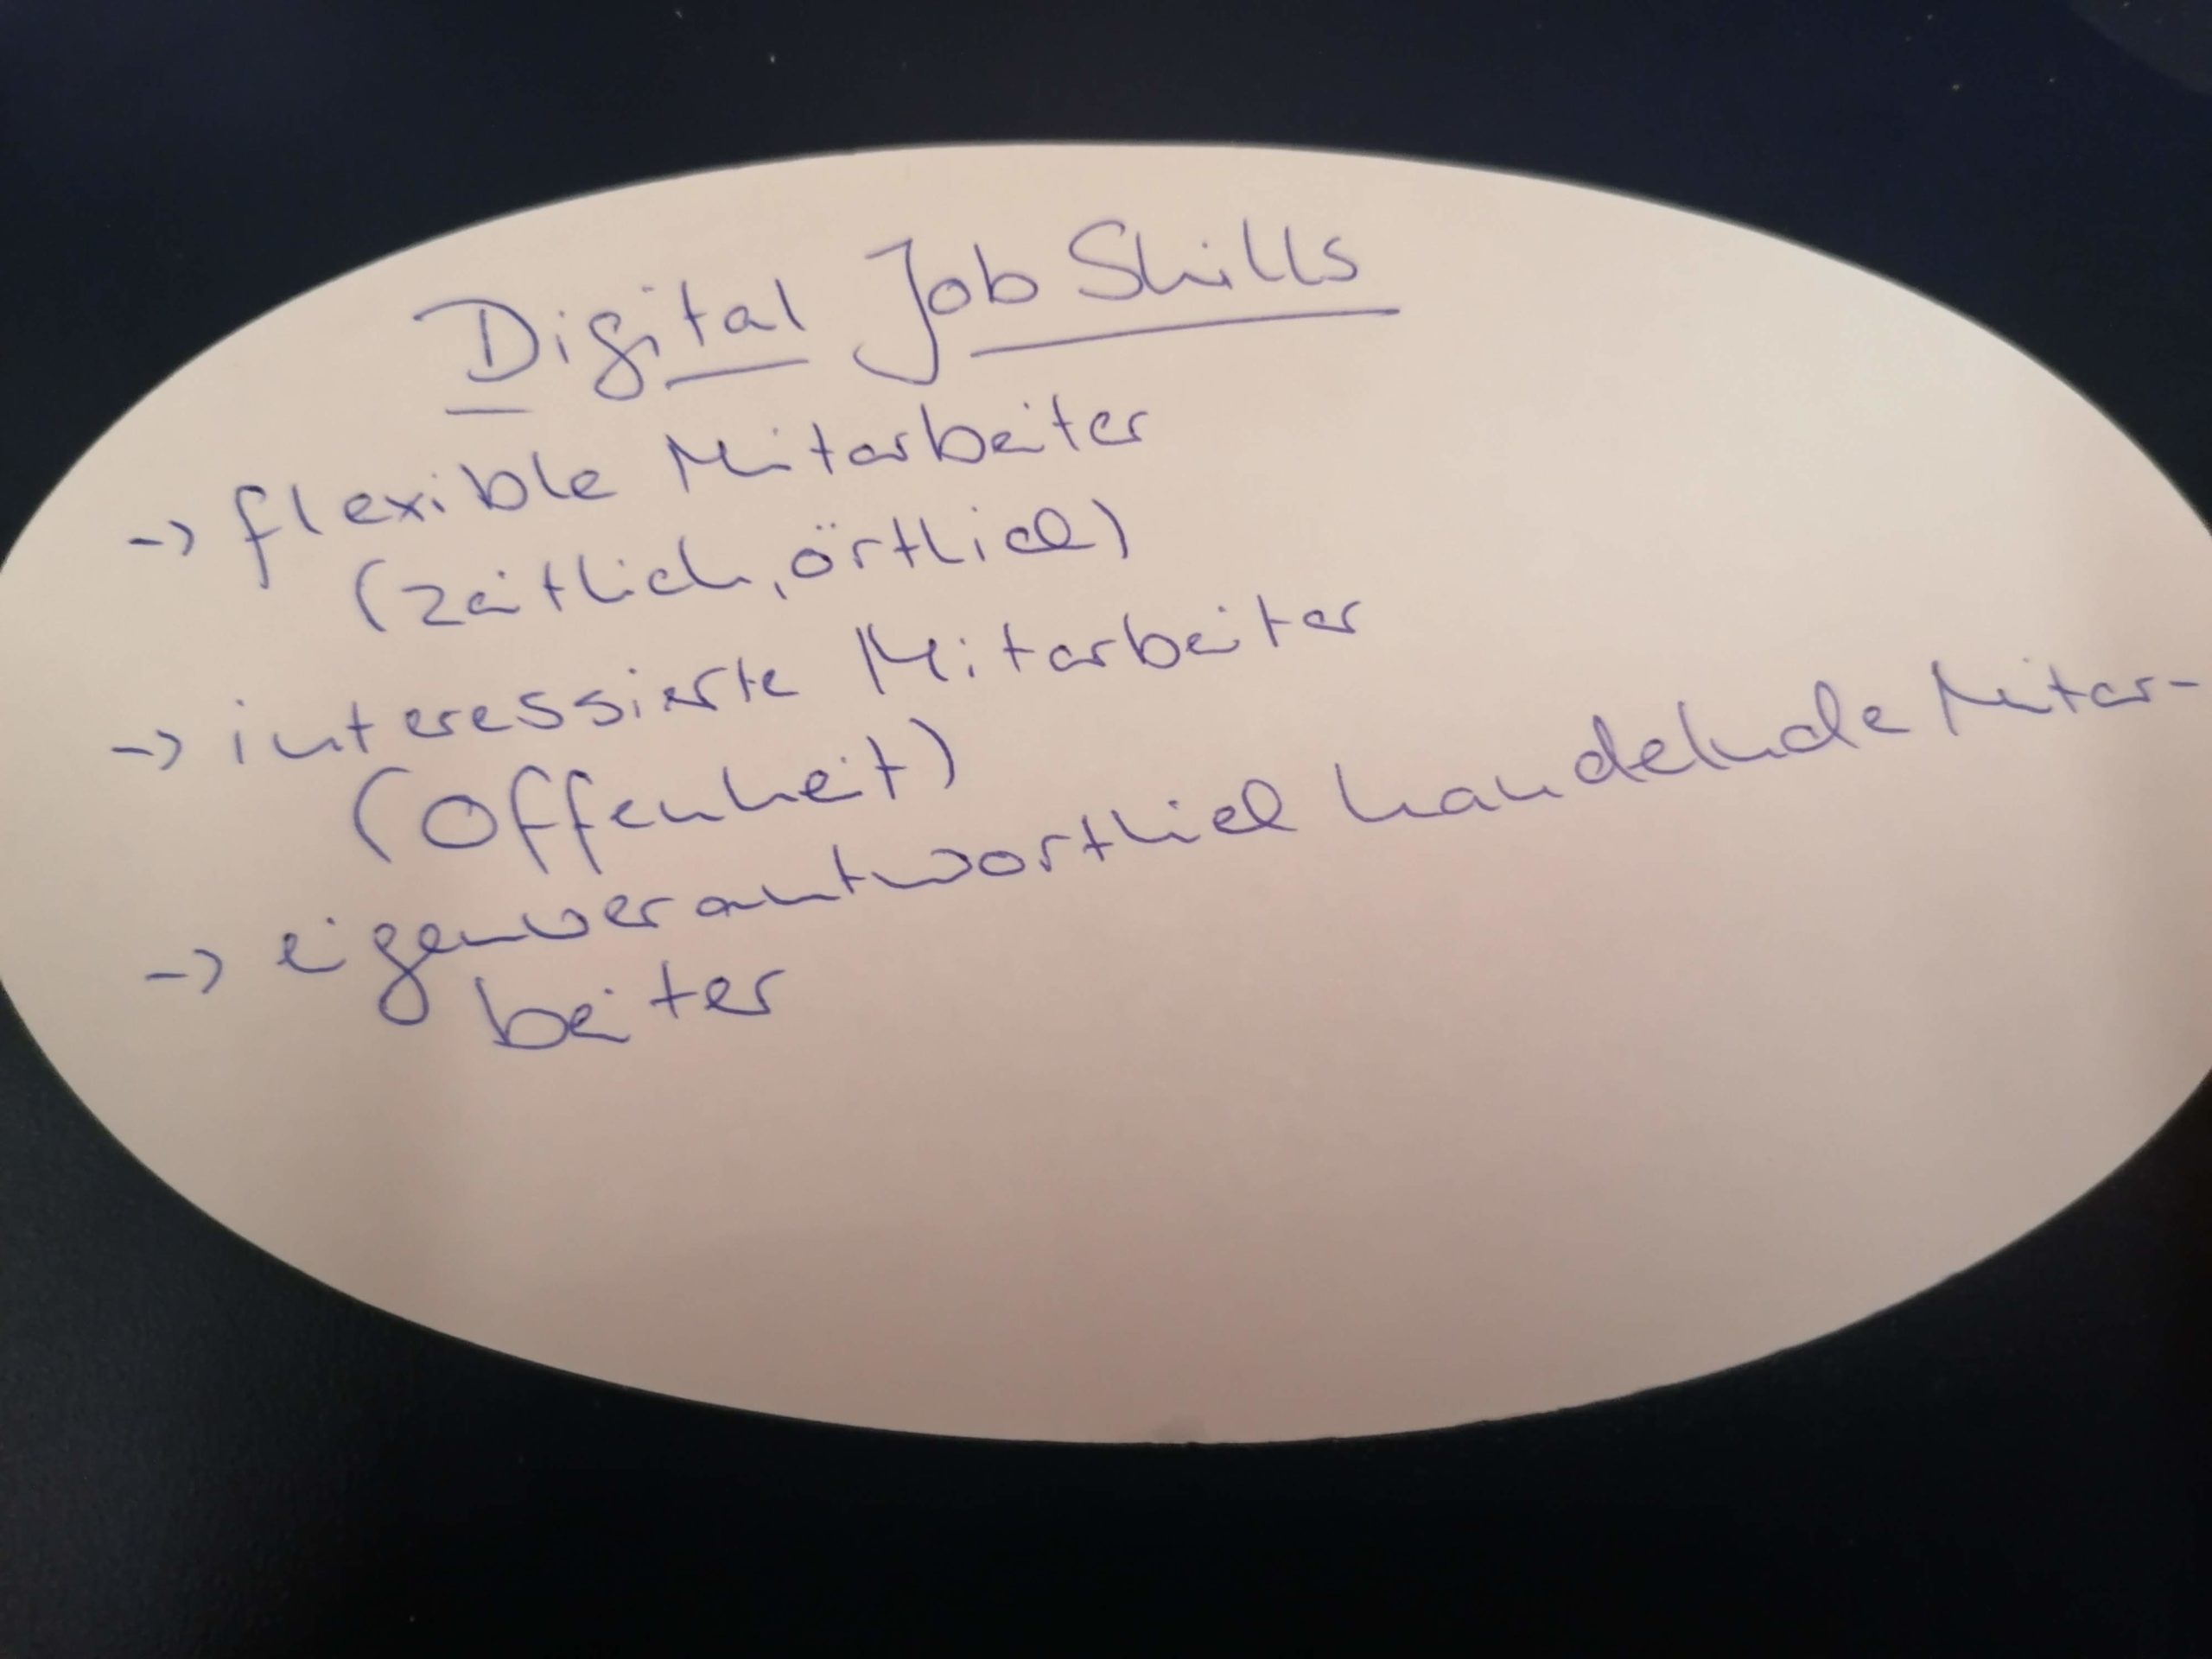 Digital Job Skills
-> flexible Mitarbeiter
(zeitlich, örtlich)
-> interessierte Mitarbeiter
(Offenheit)
-> eigenverantwortlich handelnde Mitar-
beiter